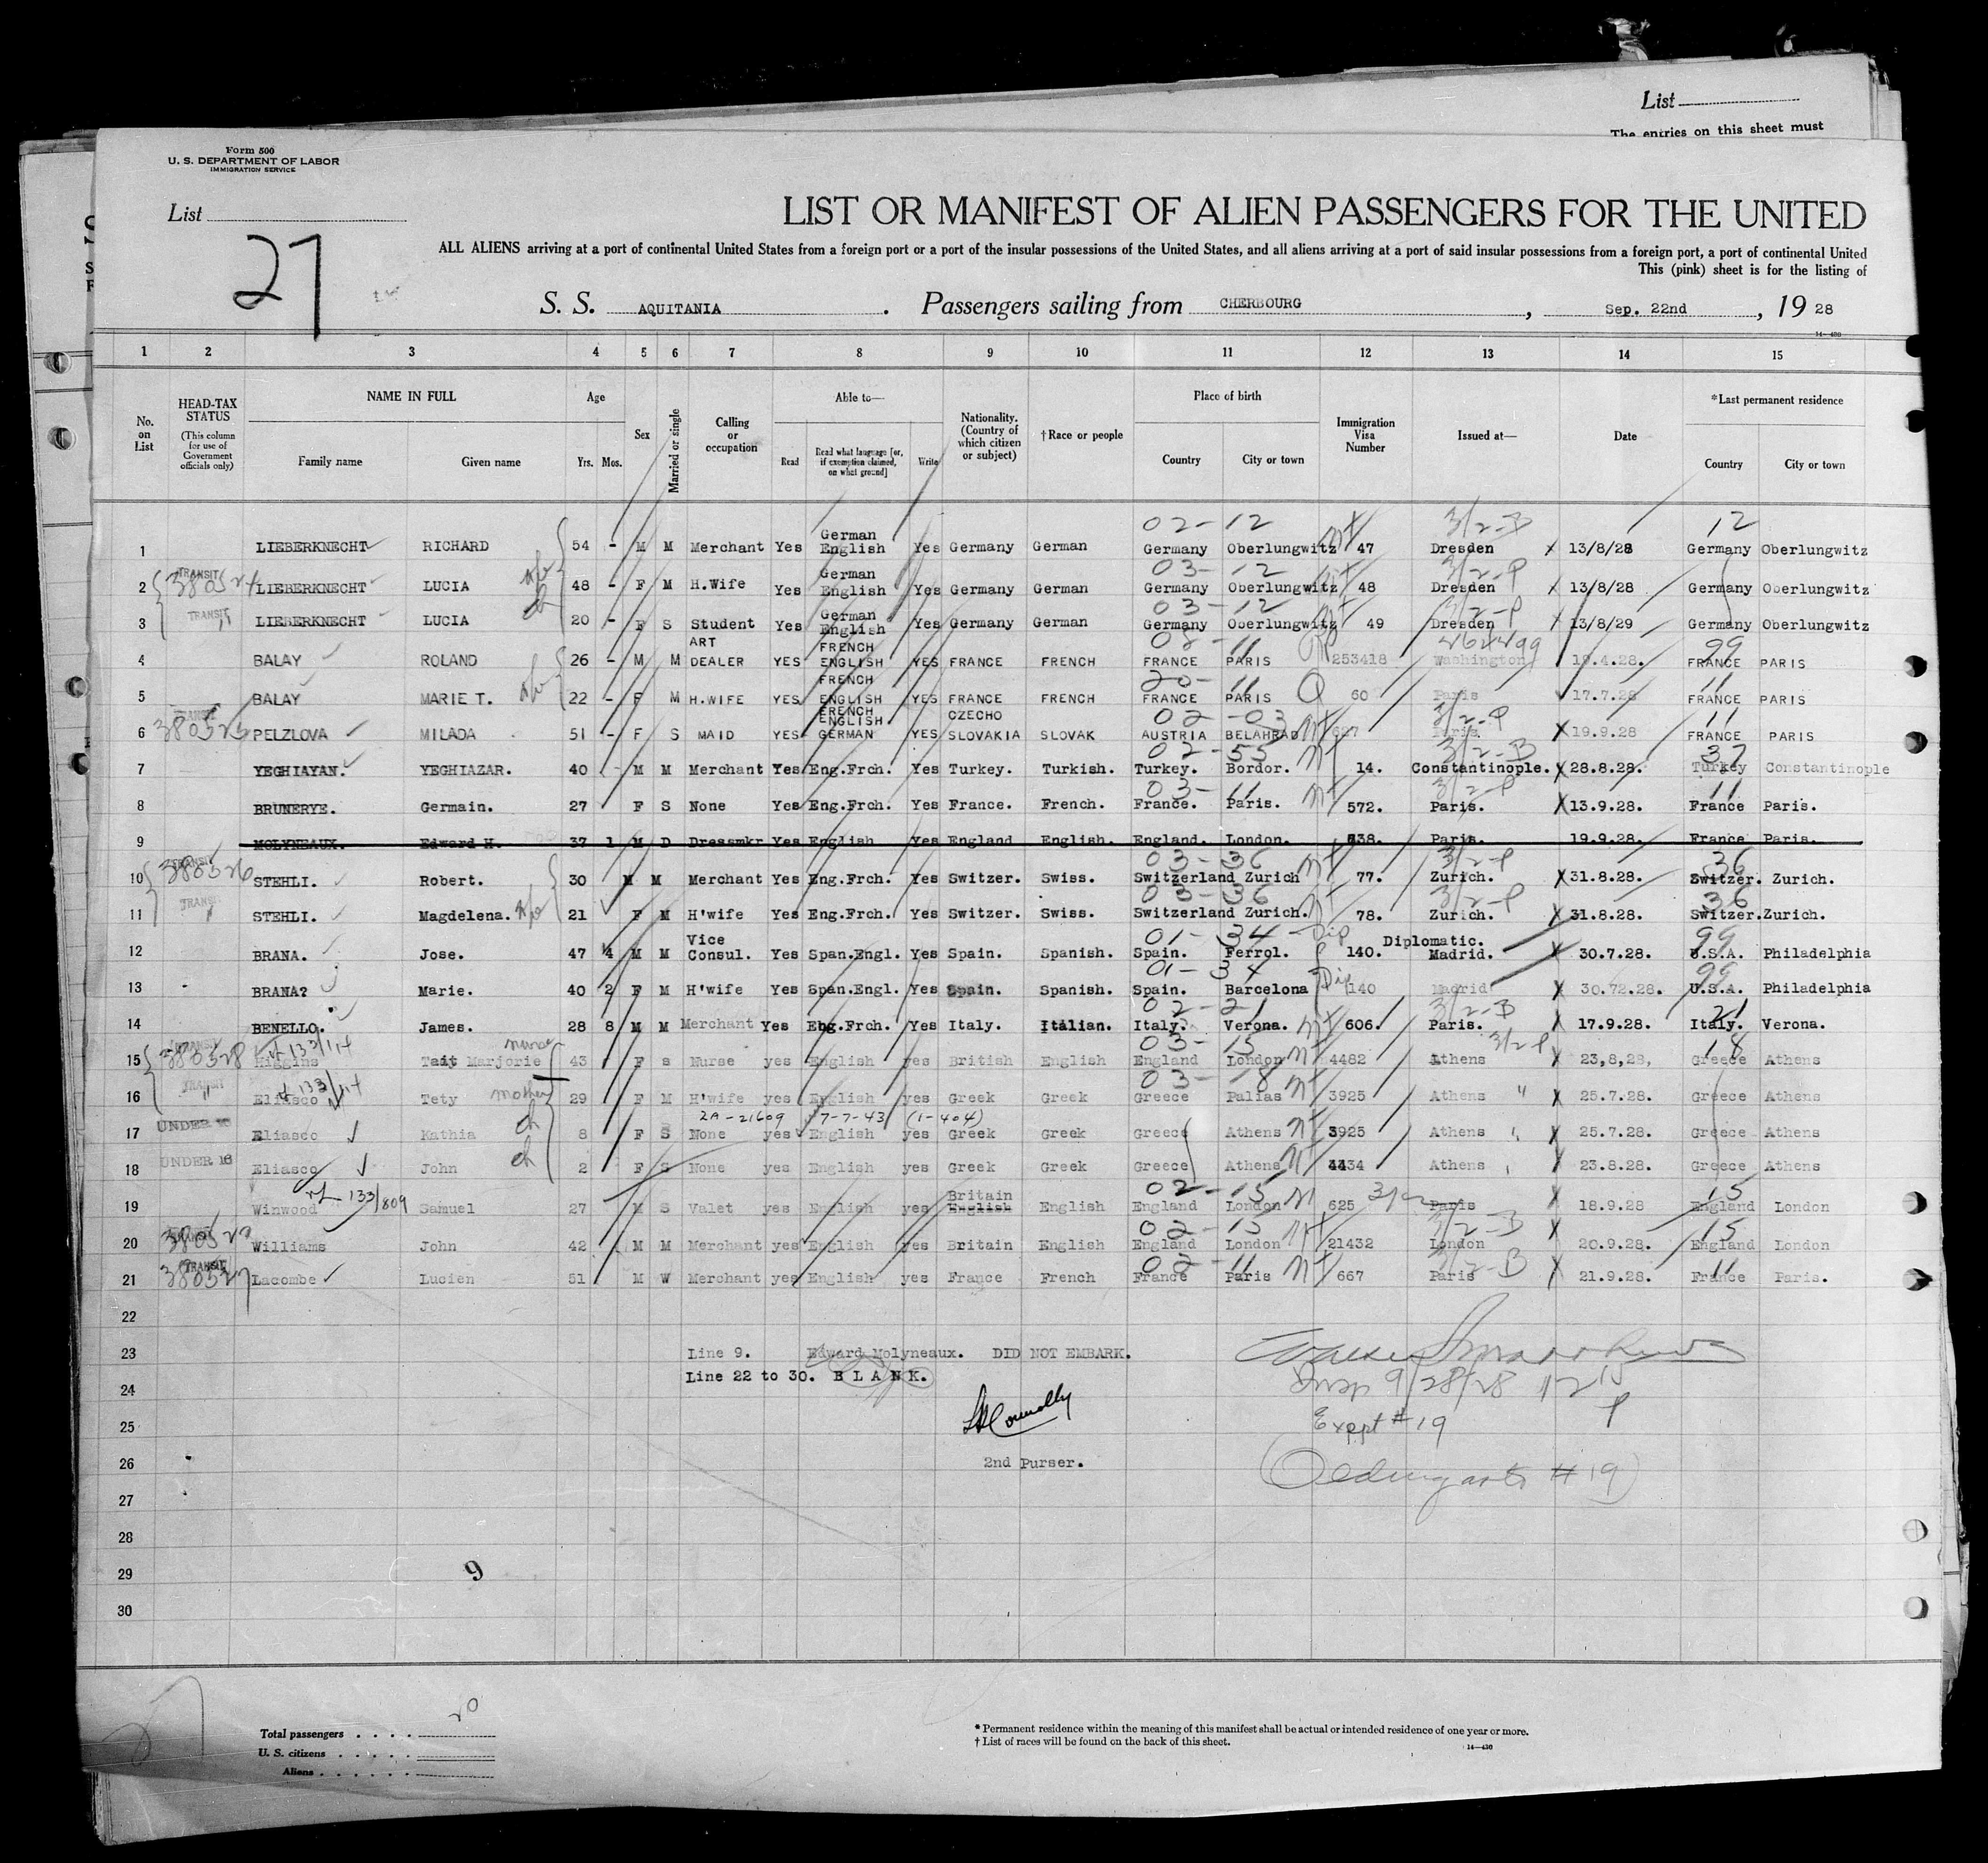 List
The entries on this sheet must
Form 500
U. S. DEPARTMENT OF LABOR
IMMIGRATION SERVICE
List
27
LIST OR MANIFEST OF ALIEN PASSENGERS FOR THE UNITED
ALL ALIENS arriving at a port of continental United States from a foreign port or a port of the insular possessions of the United States, and all aliens arriving at a port of said insular possessions from a foreign port, a port of continental United
This (pink) sheet is for the listing of
S. S. AQUITANIA. Passengers sailing from CHERBOURG, Sep. 22nd, 1928
14—430
1 2 3 4 5 6 7 8 9 10 11 12 13 14 15
No. on List
HEAD-TAX STATUS (This column for use of Government officials only)
NAME IN FULL Family name Given name
Age Yrs. Mos.
Sex
Married or single
Calling or occupation
Able to— Read Read what language [or, if exemption claimed, on what ground] Write
Nationality. (Country of which citizen or subject)
†Race or people
Place of birth Country City or town
Immigration Visa Number
Issued at—
Date
*Last permanent residence Country City or town
02-12 3/2-B 12
1 LIEBERKNECHT RICHARD 54 - M M Merchant Yes German English Yes Germany German Germany Oberlungwitz 47 Dresden 13/8/28 Germany Oberlungwitz
03-12 3/2-P
2 TRANSIT 380524 LIEBERKNECHT LUCIA 48 - F M H.Wife Yes German English Yes Germany German Germany Oberlungwitz 48 Dresden 13/8/28 Germany Oberlungwitz
03-12 3/2-P
3 TRANSIT LIEBERKNECHT LUCIA 20 - F S Student Yes German English Yes Germany German Germany Oberlungwitz 49 Dresden 13/8/29 Germany Oberlungwitz
08-11 99
4 BALAY ROLAND 26 - M M ART DEALER YES FRENCH ENGLISH YES FRANCE FRENCH FRANCE PARIS 253418 Washington 19.4.28. FRANCE PARIS
20- 11
5 BALAY MARIE T. 22 - F M H.WIFE YES FRENCH ENGLISH YES FRANCE FRENCH FRANCE PARIS Q 60 Paris 17.7.28 FRANCE PARIS
02-03 3/2-P 11
6 380525 PELZLOVA MILADA 51 - F S MAID YES FRENCH ENGLISH GERMAN YES CZECHO SLOVAKIA SLOVAK AUSTRIA BELAHRAD Paris 19.9.28 FRANCE PARIS
02-55 3/2-B 37
7 YEGHIAYAN. YEGHIAZAR. 40 - M M Merchant Yes Eng.Frch. Yes Turkey. Turkish. Turkey. Bordor. 14. Constantinople. 28.8.28. Turkey Constantinople
03-11 3/2-P 11
8 BRUNERYE. Germain. 27 F S None Yes Eng.Frch. Yes France. French. France. Paris. 572. Paris. 13.9.28. France Paris.
9 MOLYNEAUX. Edward H. 37 1 M D Dressmkr Yes English Yes England English. England. London. 638. Paris. 19.9.28. France Paris.
03-36 3/2-P 36
10 TRANSIT 380526 STEHLI. Robert. 30 M M Merchant Yes Eng.Frch. Yes Switzer. Swiss. Switzerland Zurich 77. Zurich. 31.8.28. Switzer. Zurich.
03-36 3/2-P 36
11 TRANSIT STEHLI. Magdelena. 21 F M H'wife Yes Eng.Frch. Yes Switzer. Swiss. Switzerland Zurich. 78. Zurich. 31.8.28. Switzer. Zurich.
01-34 Dip 99
12 BRANA. Jose. 47 4 M M Vice Consul. Yes Span.Engl. Yes Spain. Spanish. Spain. Ferrol. 140. Diplomatic. Madrid. 30.7.28. U.S.A. Philadelphia
01-34 Dip 99
13 BRANA? Marie. 40 2 F M H'wife Yes Span.Engl. Yes Spain. Spanish. Spain. Barcelona 140 Madrid 30.72.28. U.S.A. Philadelphia
02-21 3/2-B 21
14 BENELLO. James. 28 8 M M Merchant Yes Eng.Frch. Yes Italy. Itilian. Italy. Verona. 606. Paris. 17.9.28. Italy. Verona.
133/114 nurse 03-15 3/2 P 18
15 TRANSIT 380528 Higgins Tait Marjorie 43 F s Nurse yes English yes British English England London 4482 Athens 23,8,28, Greece Athens
133/114 mother 03-18
16 TRANSIT Eliasco Tety 29 F M H'wife yes English yes Greek Greek Greece Pallas 3925 Athens " 25.7.28. Greece Athens
2A-21609 7-7-43 (1-404)
17 UNDER 16 Eliasco Kathia ch 8 F S None yes English yes Greek Greek Greece Athens 3925 Athens 25.7.28. Greece Athens
18 UNDER 16 Eliasco John ch 2 F S None yes English yes Greek Greek Greece Athens 4434 Athens 23.8.28. Greece Athens
133/809 02-15 15
19 Winwood Samuel 27 M S Valet yes English yes Britain English English England London 625 Paris 18.9.28 England London
02-15 3/2-B 15
20 380529 Williams John 42 M M Merchant yes English yes Britain English England London 21432 London 20.9.28. England London
02-11 3/2-B 11
21 TRANSIT 380527 Lacombe Lucien 51 M W Merchant yes English yes France French France Paris 667 Paris 21.9.28. France Paris.
22
23 Line 9. Edward Molyneaux. DID NOT EMBARK.
24 Line 22 to 30. B L A N K.
Insp 9/28/28
25 Connolly
Exept #19
26 2nd Purser.
#19
27
28
29 9
30
Total passengers . . . . 20
U. S. citizens . . . . .
Aliens . . . . . .
* Permanent residence within the meaning of this manifest shall be actual or intended residence of one year or more.
† List of races will be found on the back of this sheet.
14—430